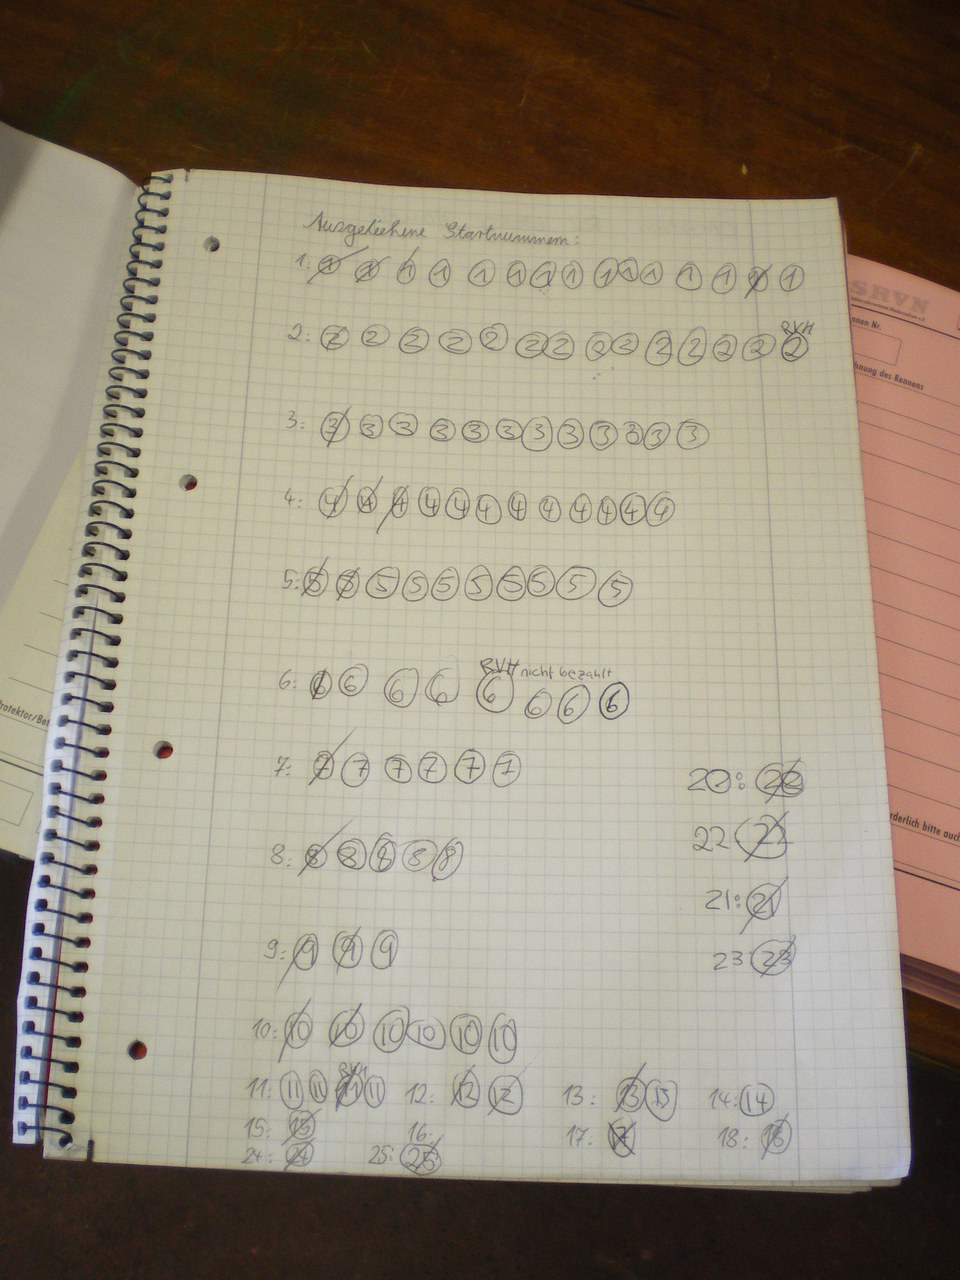 Ausgeliehene Startnummern:
1: 1 1 1 1 1 1 1 1 1 1 1 1 1 1 1
RVH
2: 2 2 2 2 2 2 2 2 2 2 2 2 2 2
3: 3 3 3 3 3 3 3 3 3 3 3 3
4: 4 4 4 4 4 4 4 4 4 4 4 4
5: 5 5 5 5 5 5 5 5 5 5
RVH nicht bezahlt
6: 6 6 6 6 6 6 6 6
7: 7 7 7 7 7 7
8: 8 8 8 8 8
9: 9 9 9
10: 10 10 10 10 10 10
RVH
11: 11 11 11 11 12: 12 12 13: 13 13 14: 14
15: 15 16: 17: 17 18: 18
24: 24 25: 25
20: 20
22 22
21: 21
23 23
SRVN
nnen Nr.
hnung des Rennens
rderlich bitte auch
rotektor/Bet